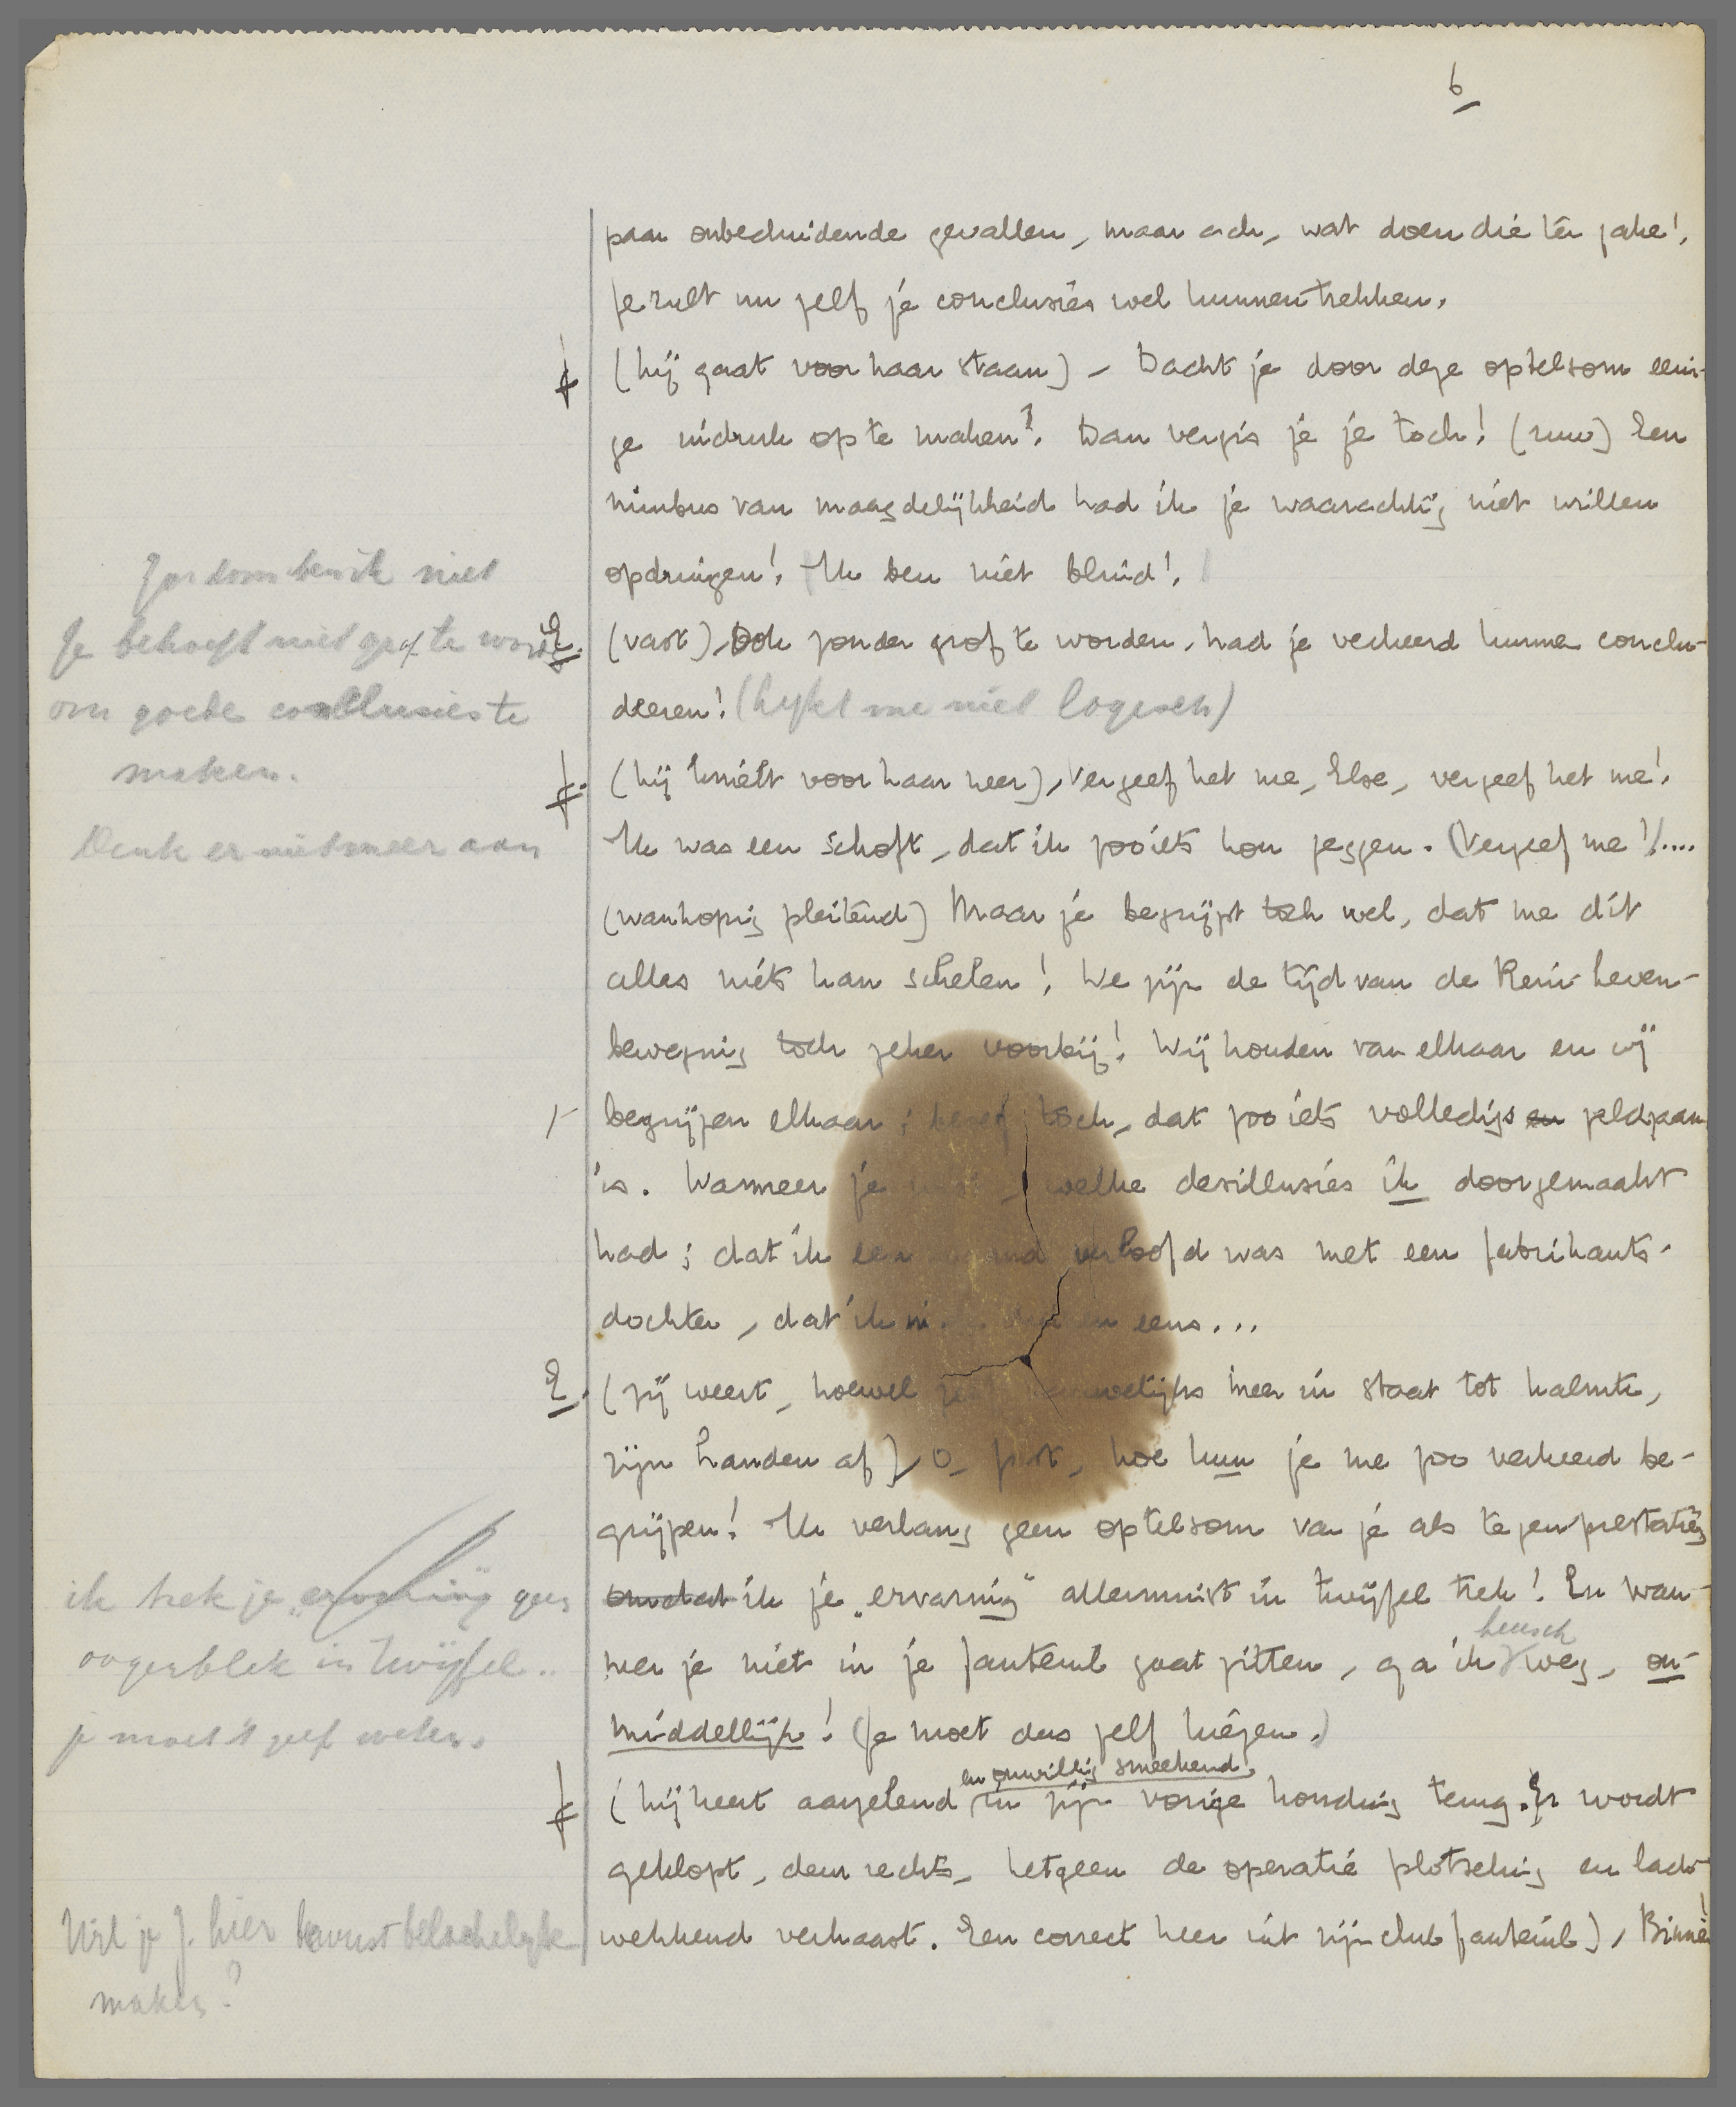 6
paar onbeduidende gevallen, maar ach, wat doen die ter zake!
Je zult nu zelf je conclusies wel kunnen trekken.
F. (hij gaat voor haar staan) – Dacht je door deze optelsom eeni-
ge indruk op te maken? Dan vergis je je toch! (ruw) Een
nimbus van maagdelijkheid had ik je waarachtig niet willen
opdringen! Ik ben niet blind!
Zoo dom ben ik niet
E. (vast), Ook zonder grof te worden, had je verkeerd kunnen conclu-
deeren! (lykt me niet logisch)
Je behoeft niet grof te worden
om goede conclusies te
maken.
F. (hij knielt voor haar neer), Vergeef het me, Else, vergeef het me!
Ik was een schoft, dat ik zooiets kon zeggen. (Vergeef me!)....
Denk er niet meer aan
(wanhopig pleitend) Maar je begrijpt toch wel, dat me dit
alles niets kan schelen! We zijn de tijd van de Rein-Leven-
beweging toch zeker voorbij! Wij houden van elkaar en wij
begrijpen elkaar; besef toch, dat zooiets volledigs en zeldzaam
is. Wanneer je wist, welke desillusies ik doorgemaakt
had; dat ik een maand verloofd was met een fabrikants-
dochter, dat ik eens...
E. (zij weert, hoewel zelf nauwelijks meer in staat tot kalmte,
zijn handen af), O, hoe kun je me zoo verkeerd be-
grijpen! Ik verlang geen optelsom van je als tegenprestatie,
omdat ik je „ervaring” allerminst in twijfel trek! En wan-
neer je niet in je fauteuil gaat zitten, ga ik heusch weg, on-
middellijk! (Je moet dus zelf kiezen.)
ik trek je „ervaring geen
oogenblik in twijfel..
je moet 't zelf weten.
F. (hij keert aarzelend en onwillig smeekend in zijn vorige houding terug. Er wordt
geklopt, deur rechts, hetgeen de operatie plotseling en lach-
wekkend verhaast. Een correct heer uit zijn clubfauteuil), Binnen!
Wil je J. hier bewust belachelyk
maken?